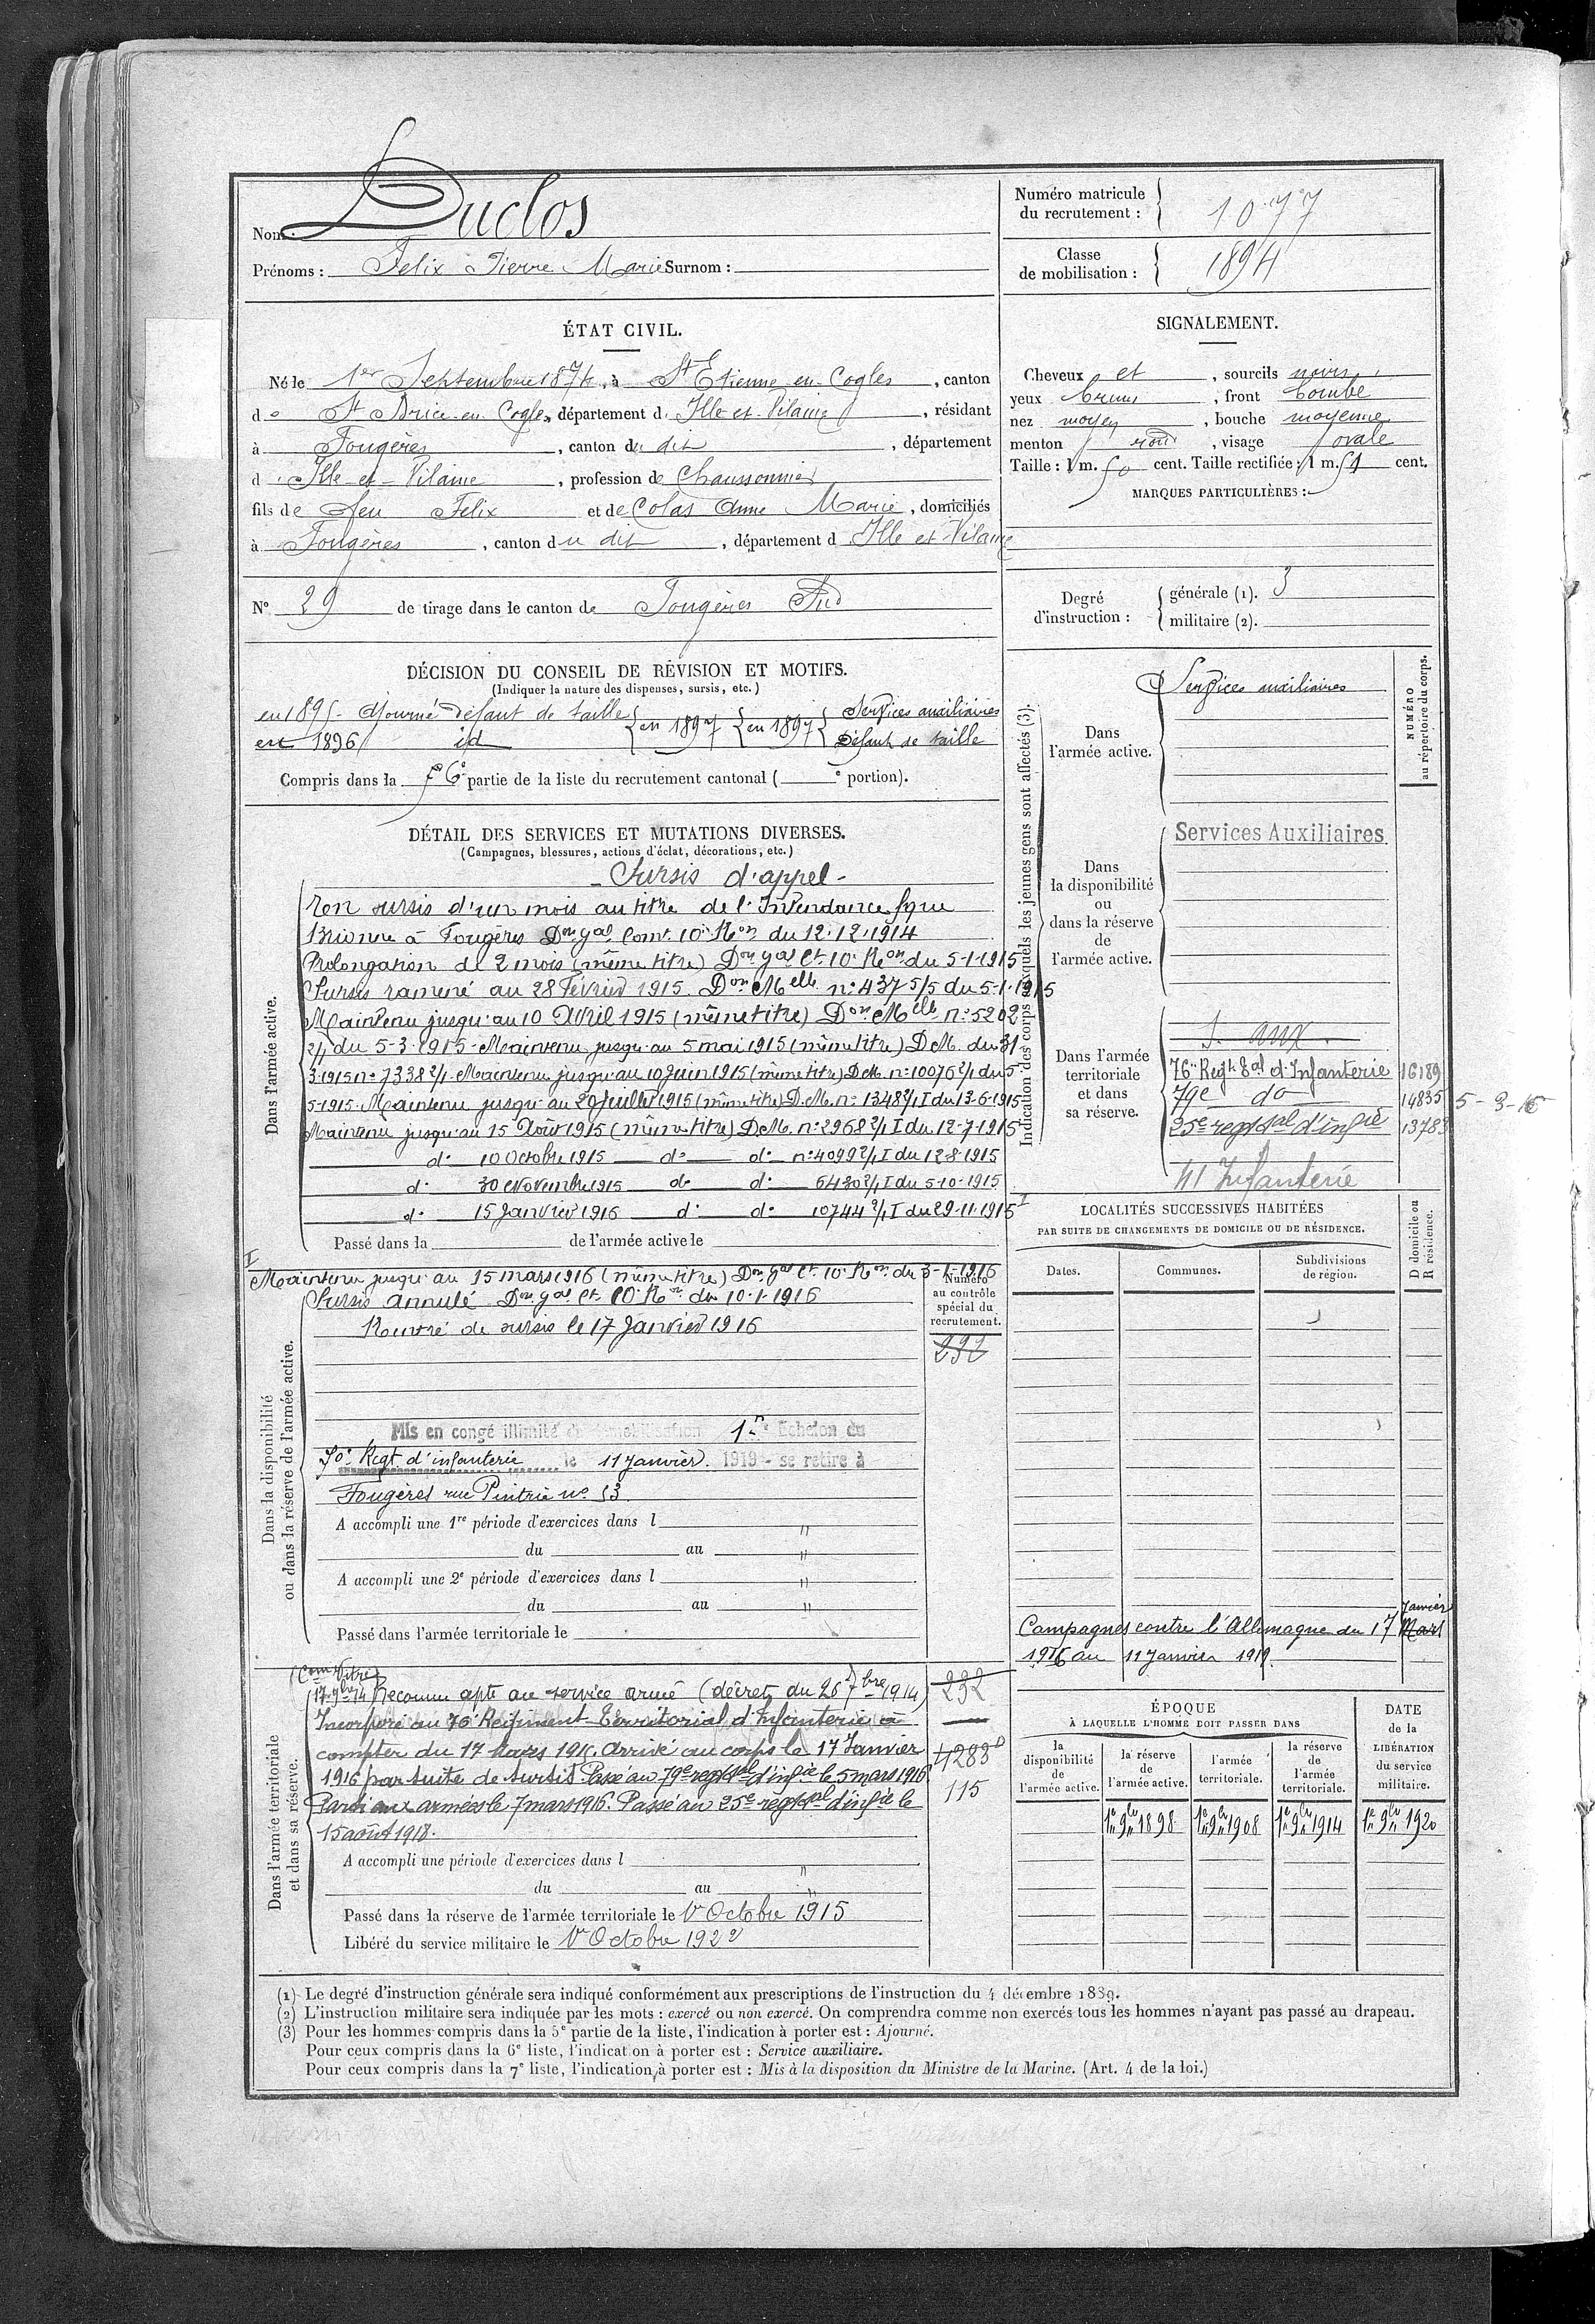 Nom : Duclos
Prénoms : Felix Pierre Marie Surnom :
Numéro matricule du recrutement : 1077
Classe de mobilisation : 1894
ÉTAT CIVIL.
Né le 1er Septembre 1874, à St Etienne en Cogles, canton
de St Brice en Cogles, département d'Ille et Vilaine, résidant
à Fougères, canton du dit, département
d'Ille et Vilaine, profession de Chaussonnier
fils de feu Felix et de Colas Anne Marie, domiciliés
à Fougères, canton du dit, département d Ille et Vilaine
N° 29 de tirage dans le canton de Fougères Sud
SIGNALEMENT.
Cheveux et, sourcils noirs
yeux bruns, front bombé
nez moyen, bouche moyenne
menton rond, visage ovale
Taille : 1 m. 50 cent. Taille rectifiée : 1 m. 51 cent.
MARQUES PARTICULIÈRES :
Degré d'instruction :
générale (1). 3
militaire (2).
DÉCISION DU CONSEIL DE RÉVISION ET MOTIFS.
(Indiquer la nature des dispenses, sursis, etc.)
en 1895 - Ajourné défaut de taille
en 1896 id
en 1897 en 1897 Services auxiliaires
Défaut de taille
Compris dans la 6e partie de la liste du recrutement cantonal ( e portion).
DÉTAIL DES SERVICES ET MUTATIONS DIVERSES.
(Campagnes, blessures, actions d'éclat, décorations, etc.)
Dans l'armée active.
- Sursis d'appel -
en sursis d'un mois au titre de l'Intendance
à Fougères Don Gal Comt 10e Ron du 12.12.1914
Prolongation de 2 mois (même titre) Don Gal Ct 10e Ron du 5-1-1915
Sursis ramené au 28 Février 1915. Don Melle n° 437-5/5 du 5-1-1915
Maintenu jusqu'au 10 Avril 1915 (même titre) Don Melle n° 5202
2/1 du 5-3-1915 - Maintenu jusqu'au 5 mai 1915 (même titre) DM. du 31-
3-1915 n° 7338 2/1 - Maintenu jusqu'au 10 Juin 1915 (même titre) DM. n° 10076 2/1 du 5-
5-1915. Maintenu jusqu'au 20 Juillet 1915 (même titre) D.M. n° 1348 2/1 I du 13-6-1915
Maintenu jusqu'au 15 Août 1915 (même titre) DM. n° 2968 2/1 I du 12-7-1915
d° 10 Octobre 1915 d° d° n° 4099 2/1 I du 12-8-1915
d° 30 Novembre 1915 d° d° 6430 2/1 I du 5-10-1915
d° 15 Janvier 1916 d° d° 10744 2/1 I du 29-11-1915 I
Passé dans la de l'armée active le
I
Maintenu jusqu'au 15 mars 1916 (même titre) Don Gal Ct 10e Ron du 3-1-1916
Dans la disponibilité ou dans la réserve de l'armée active.
Sursis annulé Don Gal Ct 10e Ron du 10-1-1916
Rentré de sursis le 17 Janvier 1916
Numéro au contrôle spécial du recrutement.
232
Mis en congé illimité de démobilisation 1er Echelon du
70e Regt d'infanterie le 11 Janvier 1919 - se retire à
Fougères rue Pintrie n° 53
A accompli une 1re période d'exercices dans l "
du au "
A accompli une 2e période d'exercices dans l "
du au "
Passé dans l'armée territoriale le
Dans l'armée territoriale et dans sa réserve.
(Com Vitré
17 9bre 14) Reconnu apte au service armé (décret du 26 7bre 1914)
Incorporé au 76e Régiment Territorial d'Infanterie à
compter du 17 Mars 1915. Arrivé au corps le 17 Janvier
1916 par suite de sursis. Passé au 79e regt tal d'infie le 5 mars 1916
Parti aux armées le 7 mars 1916. Passé au 25e regt tal d'infie le
15 août 1918.
232
4283
115
A accompli une période d'exercices dans l "
du au "
Passé dans la réserve de l'armée territoriale le 1er Octobre 1915
Libéré du service militaire le 1er Octobre 1922
Indication des corps auxquels les jeunes gens sont affectés (3).
NUMÉRO au répertoire du corps.
Dans l'armée active.
Services auxiliaires
Dans la disponibilité ou dans la réserve de l'armée active.
Services Auxiliaires
Dans l'armée territoriale et dans sa réserve.
S. aux.
76e Regt tal d'Infanterie 16189
79e do 14835 5-3-16
25e regt tal d'infie 13783
41 Infanterie
LOCALITÉS SUCCESSIVES HABITÉES
PAR SUITE DE CHANGEMENTS DE DOMICILE OU DE RÉSIDENCE.
Dates. Communes. Subdivisions de région. D domicile ou R résidence.
Janvier
Campagnes contre l'Allemagne du 17 Mars
1916 au 11 Janvier 1919.
ÉPOQUE
À LAQUELLE L'HOMME DOIT PASSER DANS
la disponibilité de l'armée active.
la réserve de l'armée active.
l'armée territoriale.
la réserve de l'armée territoriale.
DATE de la LIBÉRATION du service militaire.
1er 9bre 1898 1er 9bre 1908 1er 9bre 1914 1er 9bre 1920
(1) Le degré d'instruction générale sera indiqué conformément aux prescriptions de l'instruction du 4 décembre 1889.
(2) L'instruction militaire sera indiquée par les mots : exercé ou non exercé. On comprendra comme non exercés tous les hommes n'ayant pas passé au drapeau.
(3) Pour les hommes compris dans la 5e partie de la liste, l'indication à porter est : Ajourné.
Pour ceux compris dans la 6e liste, l'indication à porter est : Service auxiliaire.
Pour ceux compris dans la 7e liste, l'indication à porter est : Mis à la disposition du Ministre de la Marine. (Art. 4 de la loi.)